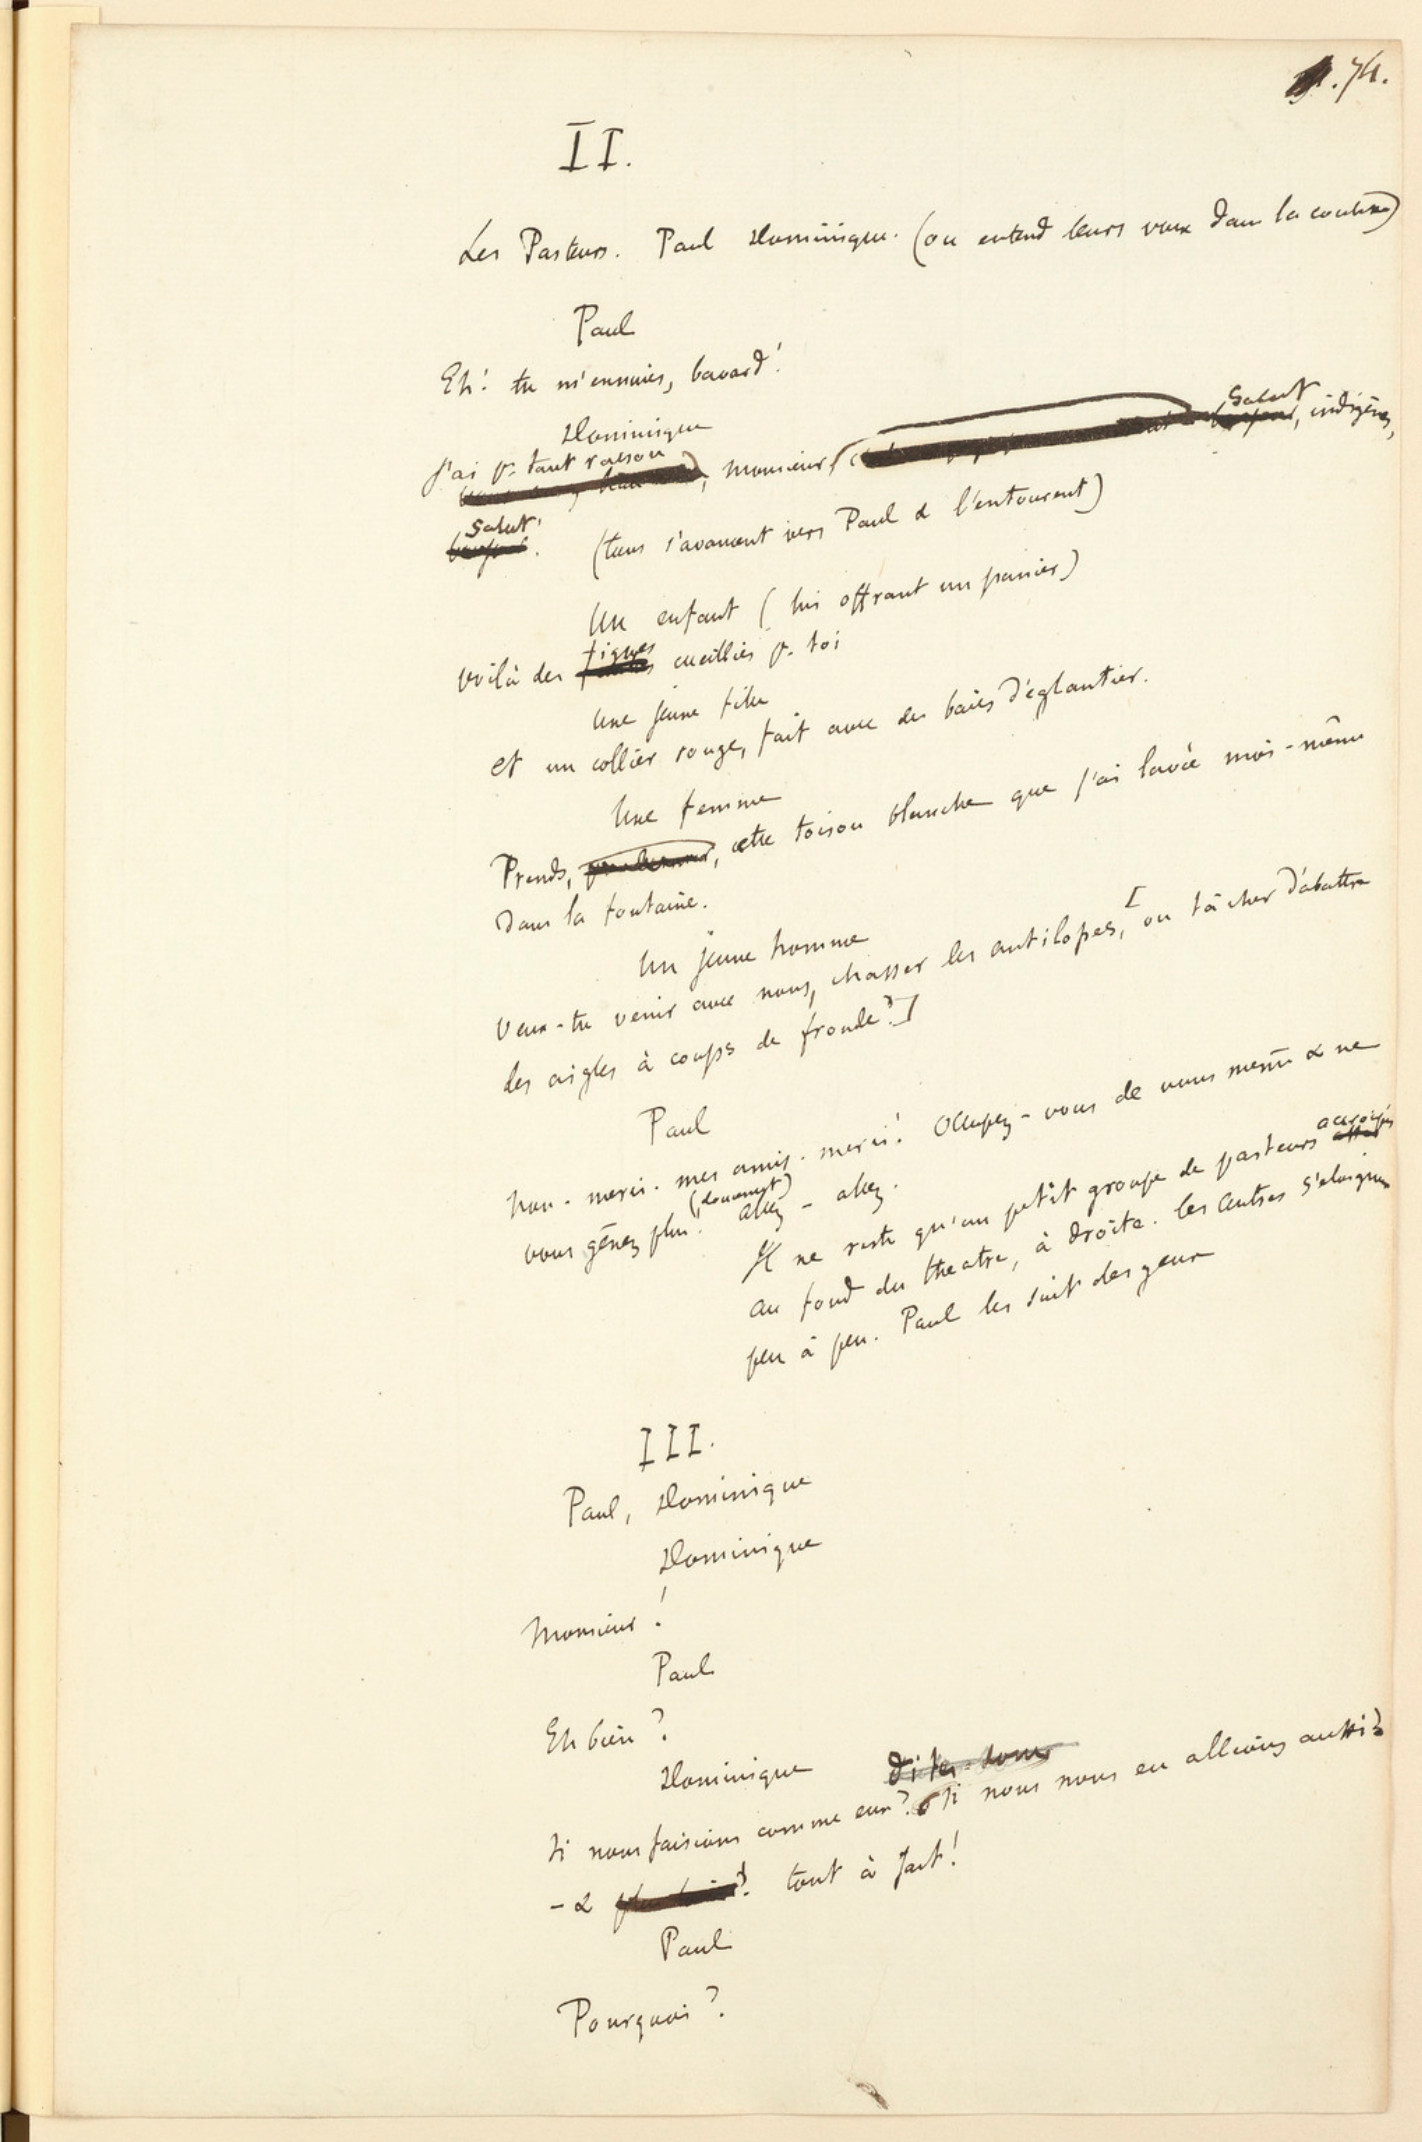 74.
II.
Les Pasteurs. Paul Dominique. (on entend leurs voix dans la coulisse)
Paul
Eh! tu m'ennuies, bavard!
Dominique
J'ai p. tant raison
, monsieur, Salut, indigènes,
Salut!
(tous s'avancent vers Paul & l'entourent)
Un enfant (lui offrant un panier)
voilà des figues cueillies p. toi
une jeune fille
et un collier rouge, fait avec des baies d'églantier.
Une femme
Prends, cette toison blanche que j'ai lavée moi-même
dans la fontaine.
Un jeune homme
Veux-tu venir avec nous, chasser les antilopes, [ou tâcher d'abattre
des aigles à coups de fronde?]
Paul
non. merci. mes amis. merci! Occupez-vous de vous même & ne
vous gênez plus! (doucement) allez - allez.
Il ne reste qu'un petit groupe de pasteurs accroupis
au fond du theatre, à droite. les autres s'eloignent
peu à peu. Paul les suit des yeux
III.
Paul, Dominique
Dominique
Monsieur!
Paul
Eh bien?
Dominique dites-donc
si nous faisions comme eux? si nous nous en allions aussi?
- & tout à fait!
Paul
Pourquoi?